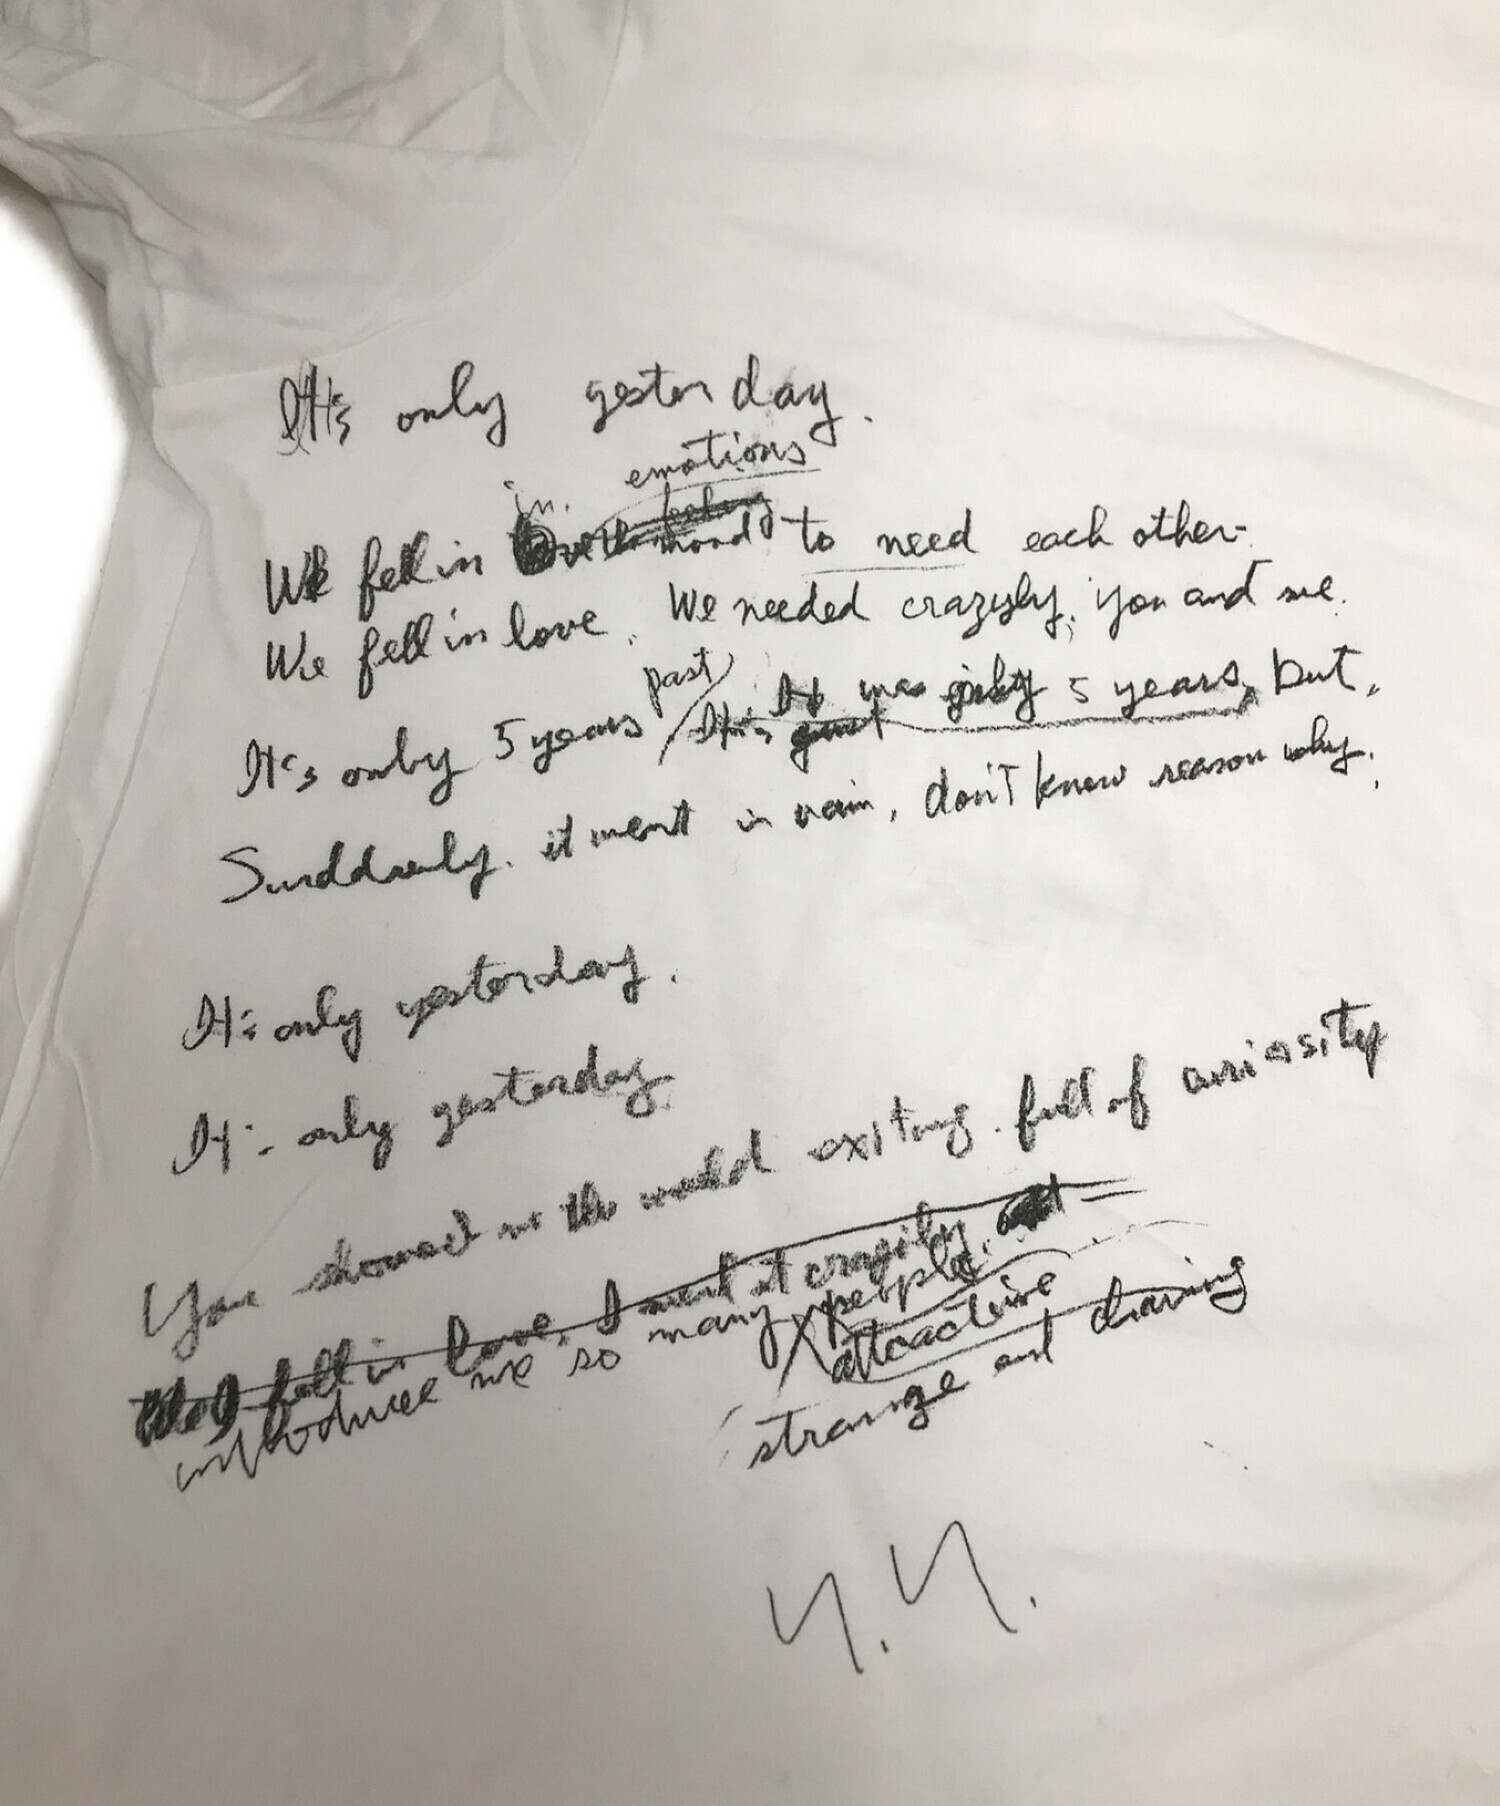 It's only yesterday.
in. emotions
feeling
We fell in mood to need each other.
We fell in love. We needed crazyly, you and me.
past
It's only 5 years It's It was 5 years, but,
Surddenly. it went in vain, don't know reason why.
It's only yesterday.
It's only yesterday.
You showed me the world exiting. full of curiosity
I fell in love. I went it crazily.
introduce me so many people.
attractive
strange and charming
Y.Y.